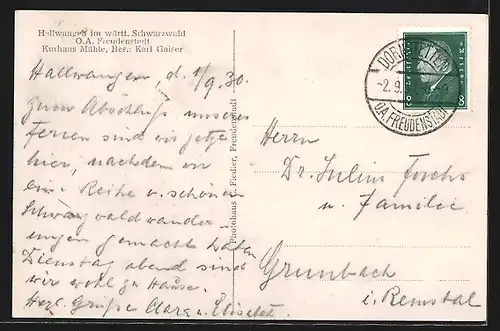 Hallwangen im württ. Schwarzwald
O.A. Freudenstadt
Kurhaus Mühle, Bes.: Karl Gaiser
Hallwangen, d. 1/9. 30.
Zum Abschluß unserer
Ferien sind wir jetzt
hier, nachdem wir
eine Reihe v. schönen
Schwarzwaldwander-
ungen gemacht haben
Dienstag abend sind
wir wohl zu Hause.
Herzl. Grüße Clara u. Elisabeth
Photohaus Fiedler, Freudenstadt
DORNSTETTEN
-2.9.
O.A. FREUDENSTADT
8 8
Herrn
Dr. Julius
u. Familie
Grunbach
i. Remstal